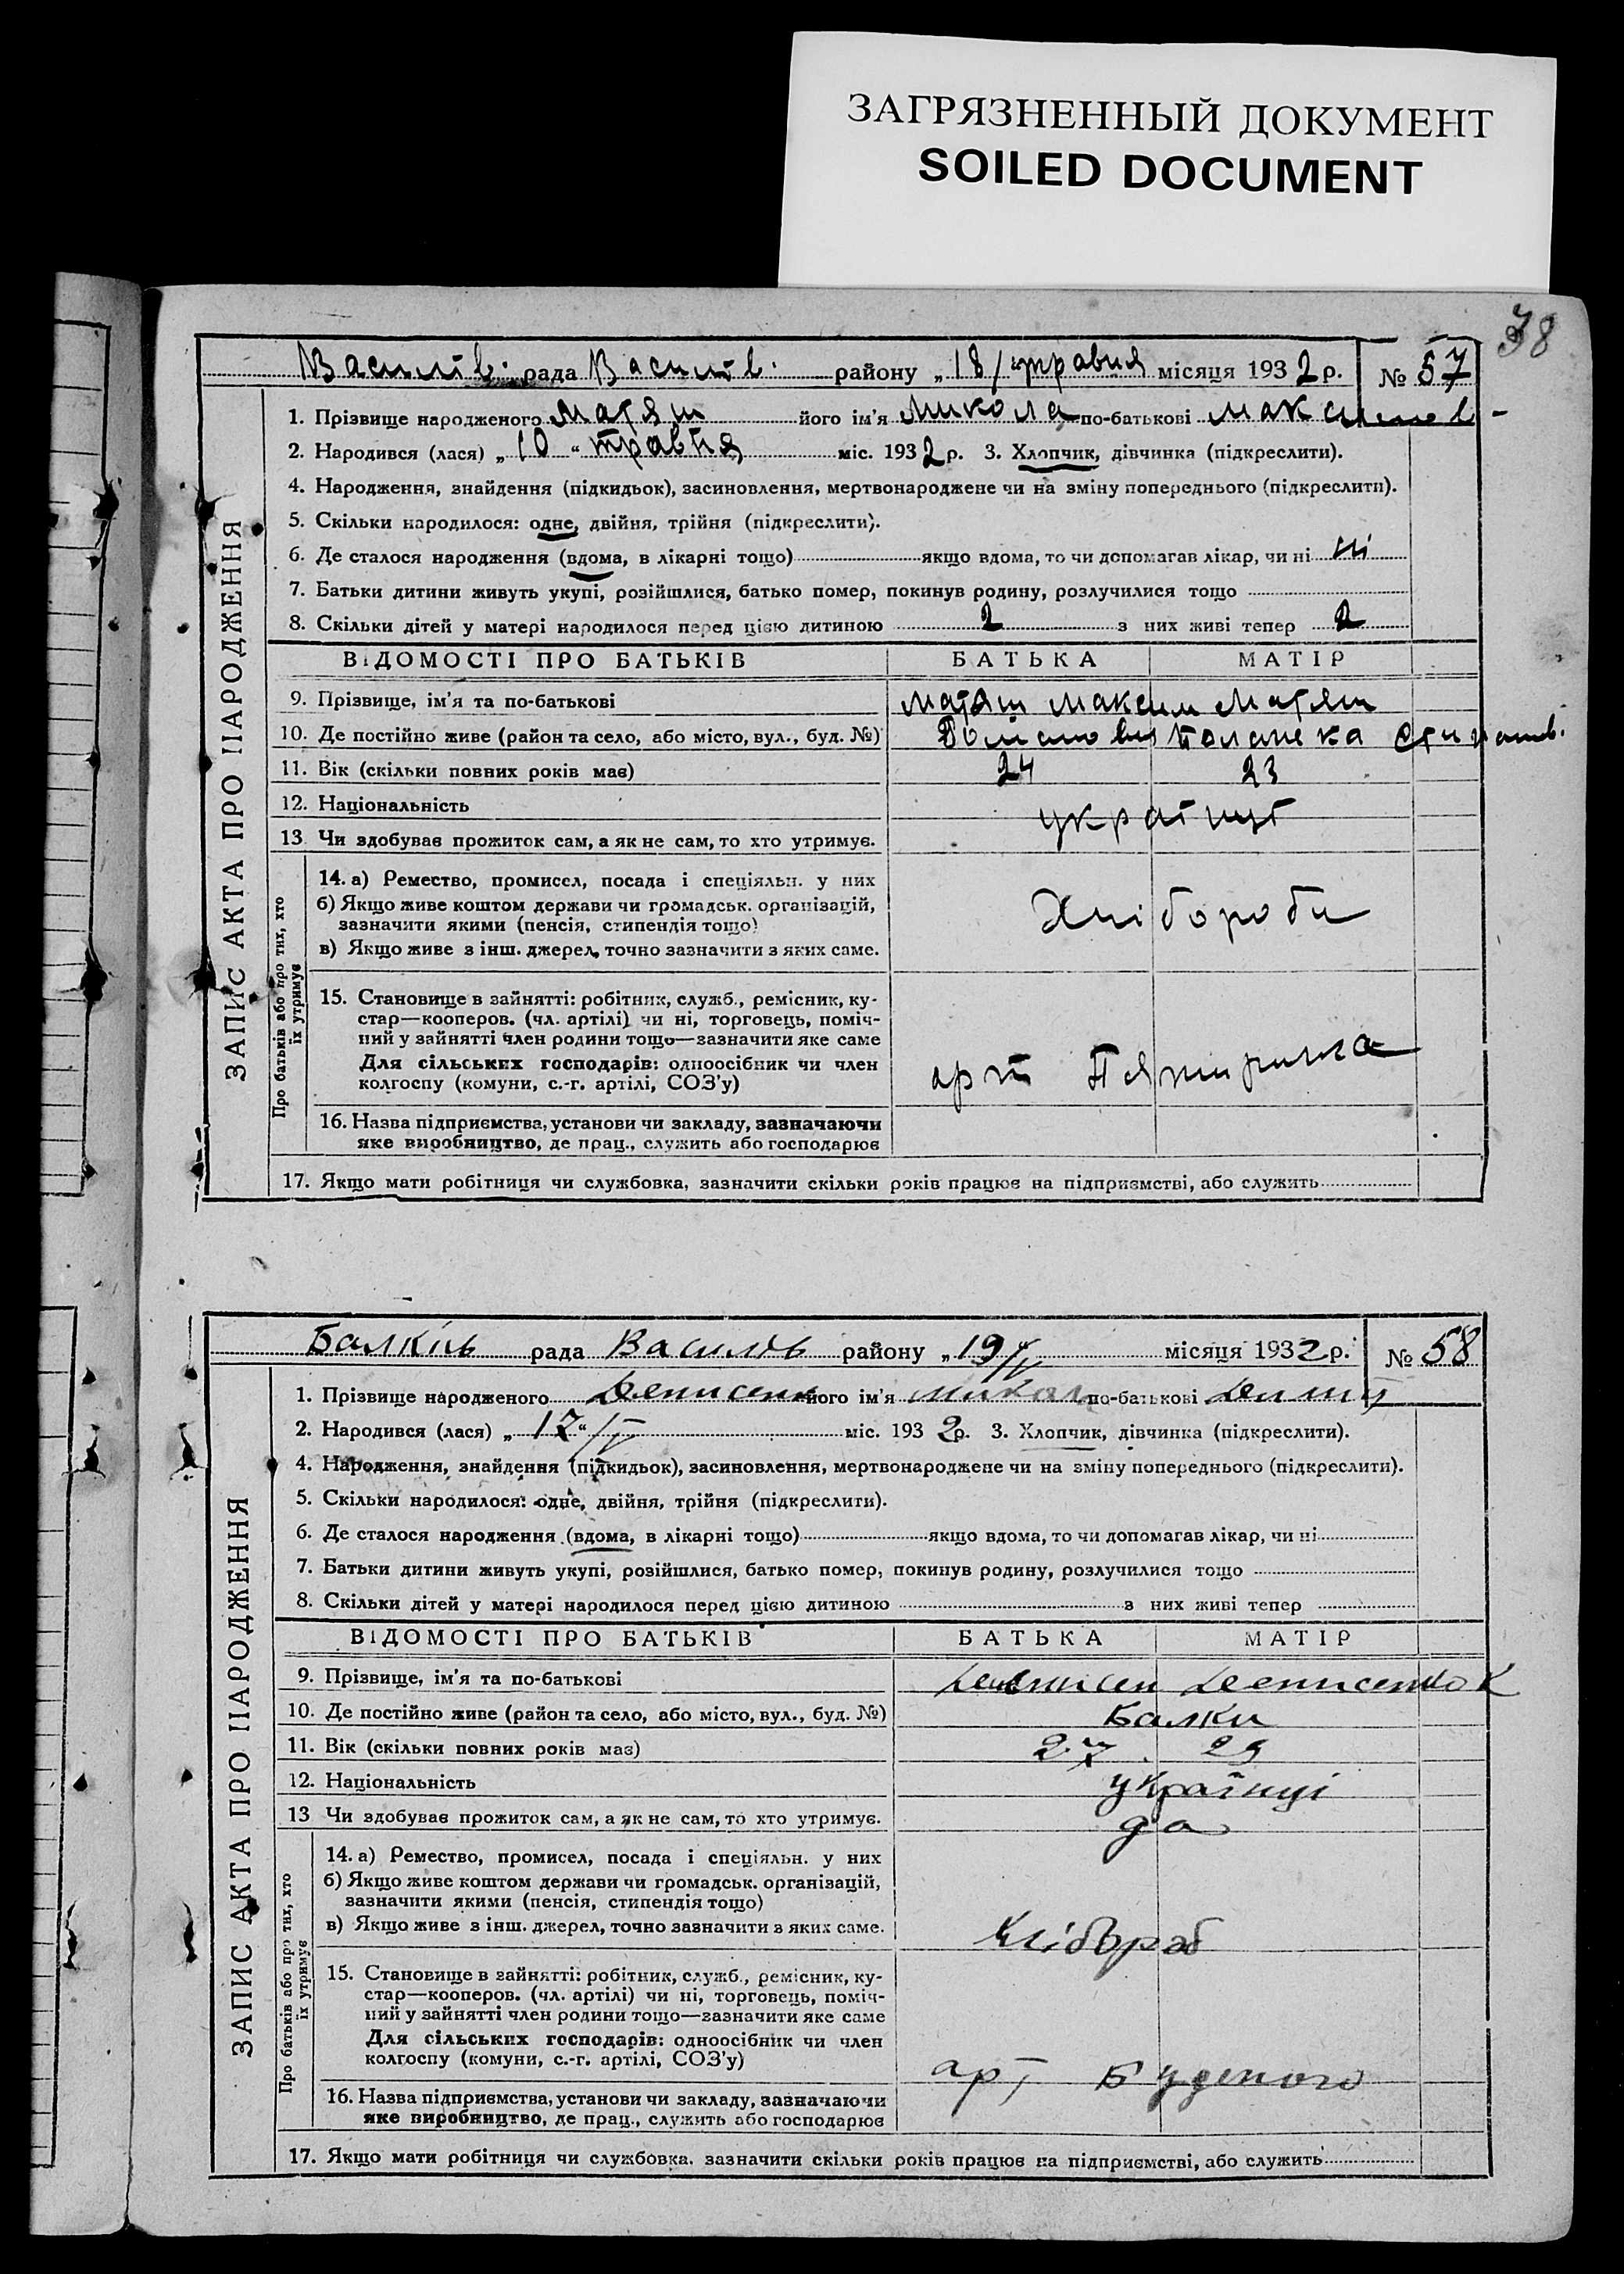 ЗАГРЯЗНЕННЫЙ ДОКУМЕНТ
SOILED DOCUMENT
38
Василів. рада Василів. району „18/травня місяця 1932 р. № 57
1. Прізвище народженого Матяш його ім'я Микола по-батькові Максимов-
2. Народився (лася) „10“ травня міс. 1932 р. 3. Хлопчик, дівчинка (підкреслити).
4. Народження, знайдення (підкидьок), засиновлення, мертвонароджене чи на зміну попереднього (підкреслити).
5. Скільки народилося: одне, двійня, трійня (підкреслити).
6. Де сталося народження (вдома, в лікарні тощо) якщо вдома, то чи допомагав лікар, чи ні ні
7. Батьки дитини живуть укупі, розійшлися, батько помер, покинув родину, розлучилися тощо
8. Скільки дітей у матері народилося перед цією дитиною 2 з них живі тепер 2
ВІДОМОСТІ ПРО БАТЬКІВ БАТЬКА МАТІР
9. Прізвище, ім'я та по-батькові Матяш Максим Матяш
10. Де постійно живе (район та село, або місто, вул., буд. №)
11. Вік (скільки повних років має) 24 23
12. Національність україн
13 Чи здобував прожиток сам, а як не сам, то хто утримує.
14. а) Ремество, промисел, посада і спеціяльн. у них
б) Якщо живе коштом держави чи громадськ. організацій,
зазначити якими (пенсія, стипендія тощо)
в) Якщо живе з інш. джерел, точно зазначити з яких саме.
Хлібороби
15. Становище в зайнятті: робітник, служб., ремісник, ку-
стар—кооперов. (чл. артілі) чи ні, торговець, поміч-
ний у зайнятті член родини тощо—зазначити яке саме
Для сільських господарів: одноосібник чи член
колгоспу (комуни, с.-г. артілі, СОЗ'у)
арт Пятирічка
16. Назва підприємства, установи чи закладу, зазначаючи
яке виробництво, де прац., служить або господарює
17. Якщо мати робітниця чи службовка, зазначити скільки років працює на підприємстві, або служить
ЗАПИС АКТА ПРО НАРОДЖЕННЯ
Про батьків або про тих, хто
їх утримує
Балків рада Василів району „19/V місяця 1932 р. № 58
1. Прізвище народженого Денисенк його ім'я Микол по-батькові
2. Народився (лася) „17“/V міс. 1932 р. 3. Хлопчик, дівчинка (підкреслити).
4. Народження, знайдення (підкидьок), засиновлення, мертвонароджене чи на зміну попереднього (підкреслити).
5. Скільки народилося: одне, двійня, трійня (підкреслити).
6. Де сталося народження (вдома, в лікарні тощо) якщо вдома, то чи допомагав лікар, чи ні
7. Батьки дитини живуть укупі, розійшлися, батько помер, покинув родину, розлучилися тощо
8. Скільки дітей у матері народилося перед цією дитиною з них живі тепер
ВІДОМОСТІ ПРО БАТЬКІВ БАТЬКА МАТІР
9. Прізвище, ім'я та по-батькові Денисен Денисенко К
10. Де постійно живе (район та село, або місто, вул., буд. №) Балки
11. Вік (скільки повних років має) 27 29
12. Національність українці
13 Чи здобував прожиток сам, а як не сам, то хто утримує. да
14. а) Ремество, промисел, посада і спеціяльн. у них
б) Якщо живе коштом держави чи громадськ. організацій,
зазначити якими (пенсія, стипендія тощо)
в) Якщо живе з інш. джерел, точно зазначити з яких саме.
Хлібороб
15. Становище в зайнятті: робітник, служб., ремісник, ку-
стар—кооперов. (чл. артілі) чи ні, торговець, поміч-
ний у зайнятті член родини тощо—зазначити яке саме
Для сільських господарів: одноосібник чи член
колгоспу (комуни, с.-г. артілі, СОЗ'у)
арт Буденого
16. Назва підприємства, установи чи закладу, зазначаючи
яке виробництво, де прац., служить або господарює
17. Якщо мати робітниця чи службовка, зазначити скільки років працює на підприємстві, або служить
ЗАПИС АКТА ПРО НАРОДЖЕННЯ
Про батьків або про тих, хто
їх утримує